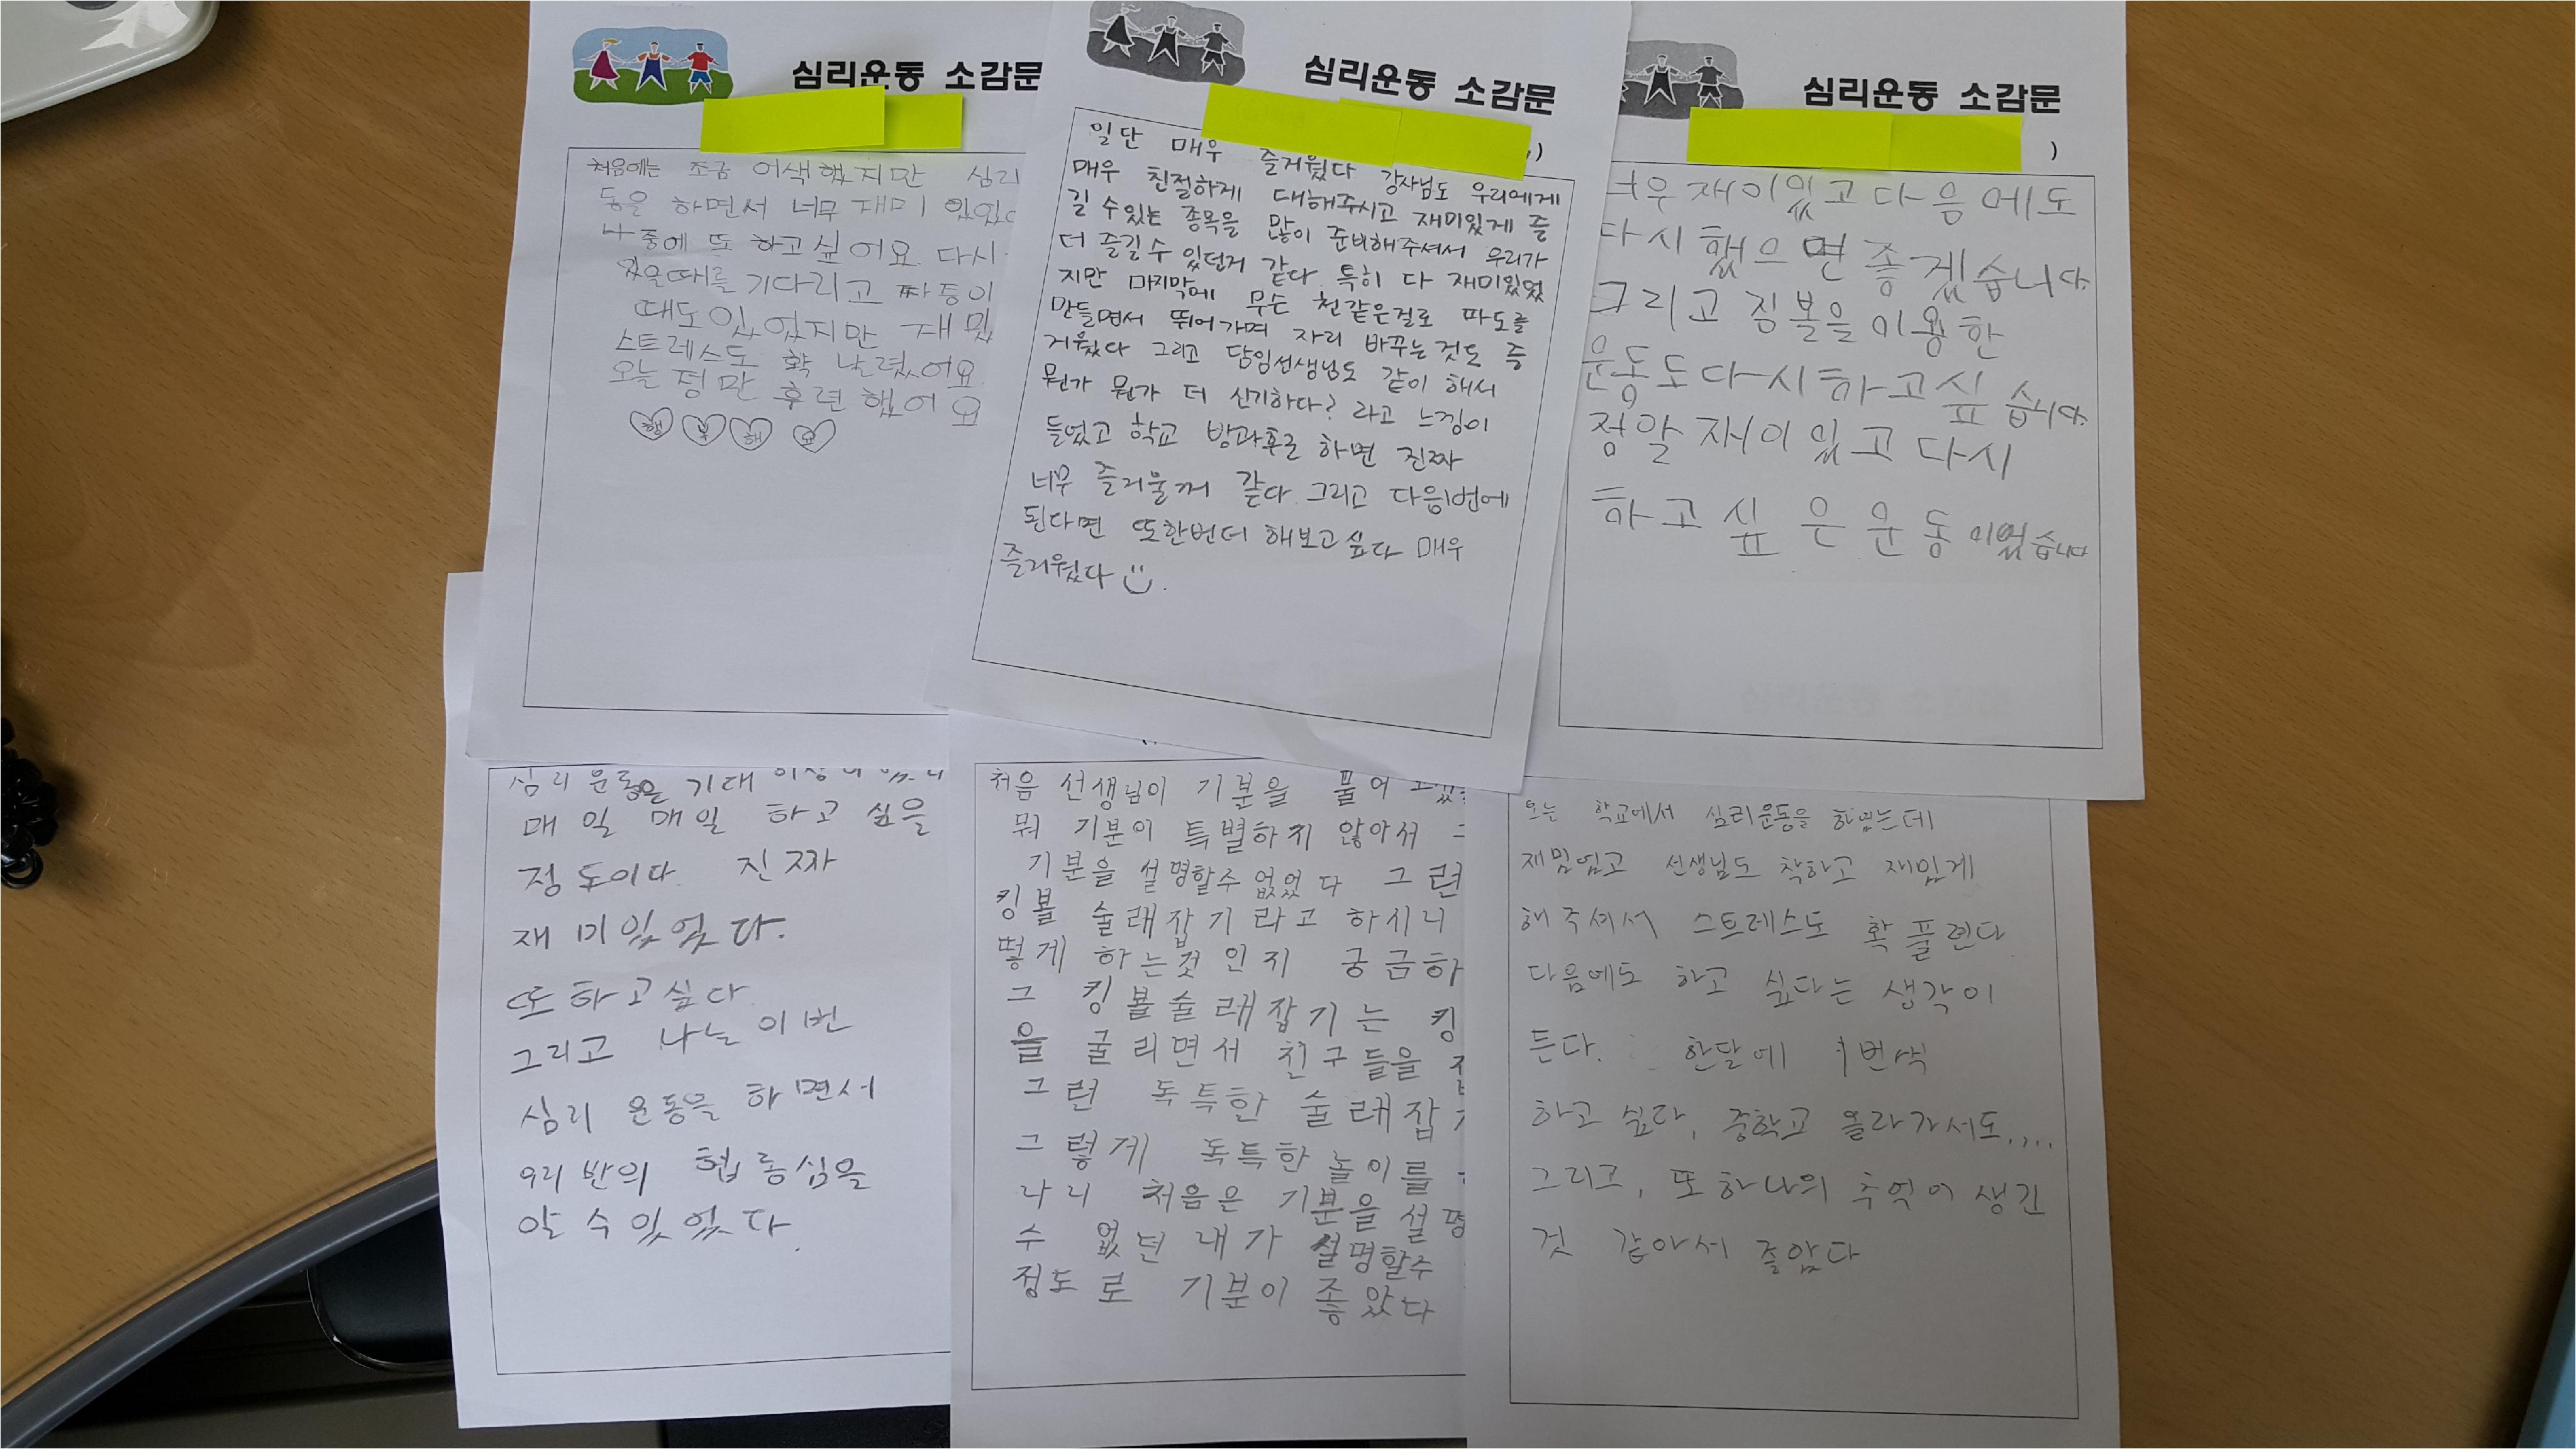 심리운동 소감문
처음에는 조금 어색했지만 심리
동을 하면서 너무 재미 있었
나중에 또 하고싶어요 다시
있을때를 기다리고 짜증이
때도 있었지만 재밌
스트레스도 확 날렸어요
오늘 정만 후련했어요
행복해요
심리운동 소감문
일단 매우 즐거웠다 강사님도 우리에게
매우 친절하게 대해주시고 재미있게 즐
길 수있는 종목을 많이 준비해주셔서 우리가
더 즐길수 있던거 같다. 특히 다 재미있었
지만 마지막에 무슨 천같은걸로 파도를
만들면서 뛰어가며 자리 바꾸는것도 즐
거웠다 그리고 담임선생님도 같이 해서
뭔가 뭔가 더 신기하다? 라고 느낌이
들었고 학교 방과후로 하면 진짜
너무 즐거울꺼 같다. 그리고 다음번에
된다면 또한번더 해보고싶다 매우
즐거웠다
심리운동 소감문
)
너무 재미있고 다음에도
다시 했으면 좋겠습니다.
그리고 짐볼을 이용한
운동도 다시 하고싶습니다.
정말 재미있고 다시
하고 싶은 운동이었습니다
심리운동을 기대
매일 매일 하고 싶을
정도이다. 진짜
재미있었다.
또 하고싶다
그리고 나는 이번
심리 운동을 하면서
우리반의 협동심을
알 수 있었다.
처음 선생님이 기분을 물어
뭐 기분이 특별하지 않아서
기분을 설명할수 없었다 그런
킹볼 술래잡기라고 하시니
떻게 하는것인지 궁금하
그 킹볼술래잡기는 킹
을 굴리면서 친구들을
그런 독특한 술래잡
그렇게 독특한 놀이를
나니 처음은 기분을 설명
수 없던 내가 설명할수
정도로 기분이 좋았다
오늘 학교에서 심리운동을 하였는데
재밌었고 선생님도 착하고 재밌게
해주셔서 스트레스도 확 풀린다
다음에도 하고 싶다는 생각이
든다. 한달에 1번씩
하고 싶다, 중학교 올라가서도....
그리고, 또 하나의 추억이 생긴
것 같아서 좋았다